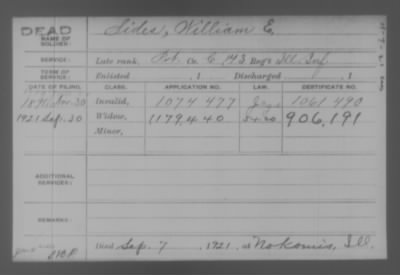 DEAD
NAME OF SOLDIER: Sides, William E.
SERVICE: Late rank, Pvt. Co. C, 143 Reg't Ill. Inf.
TERM OF SERVICE: Enlisted , 1 Discharged , 1
DATE OF FILING. CLASS. APPLICATION NO. LAW. CERTIFICATE NO.
Nov. 30 Invalid, 1074477 1061490
1921 Sep. 30 Widow, 1179440 906,191
Minor,
ADDITIONAL SERVICES:
REMARKS:
Died Sep. 7, 1921, at Nokomis, Ill.